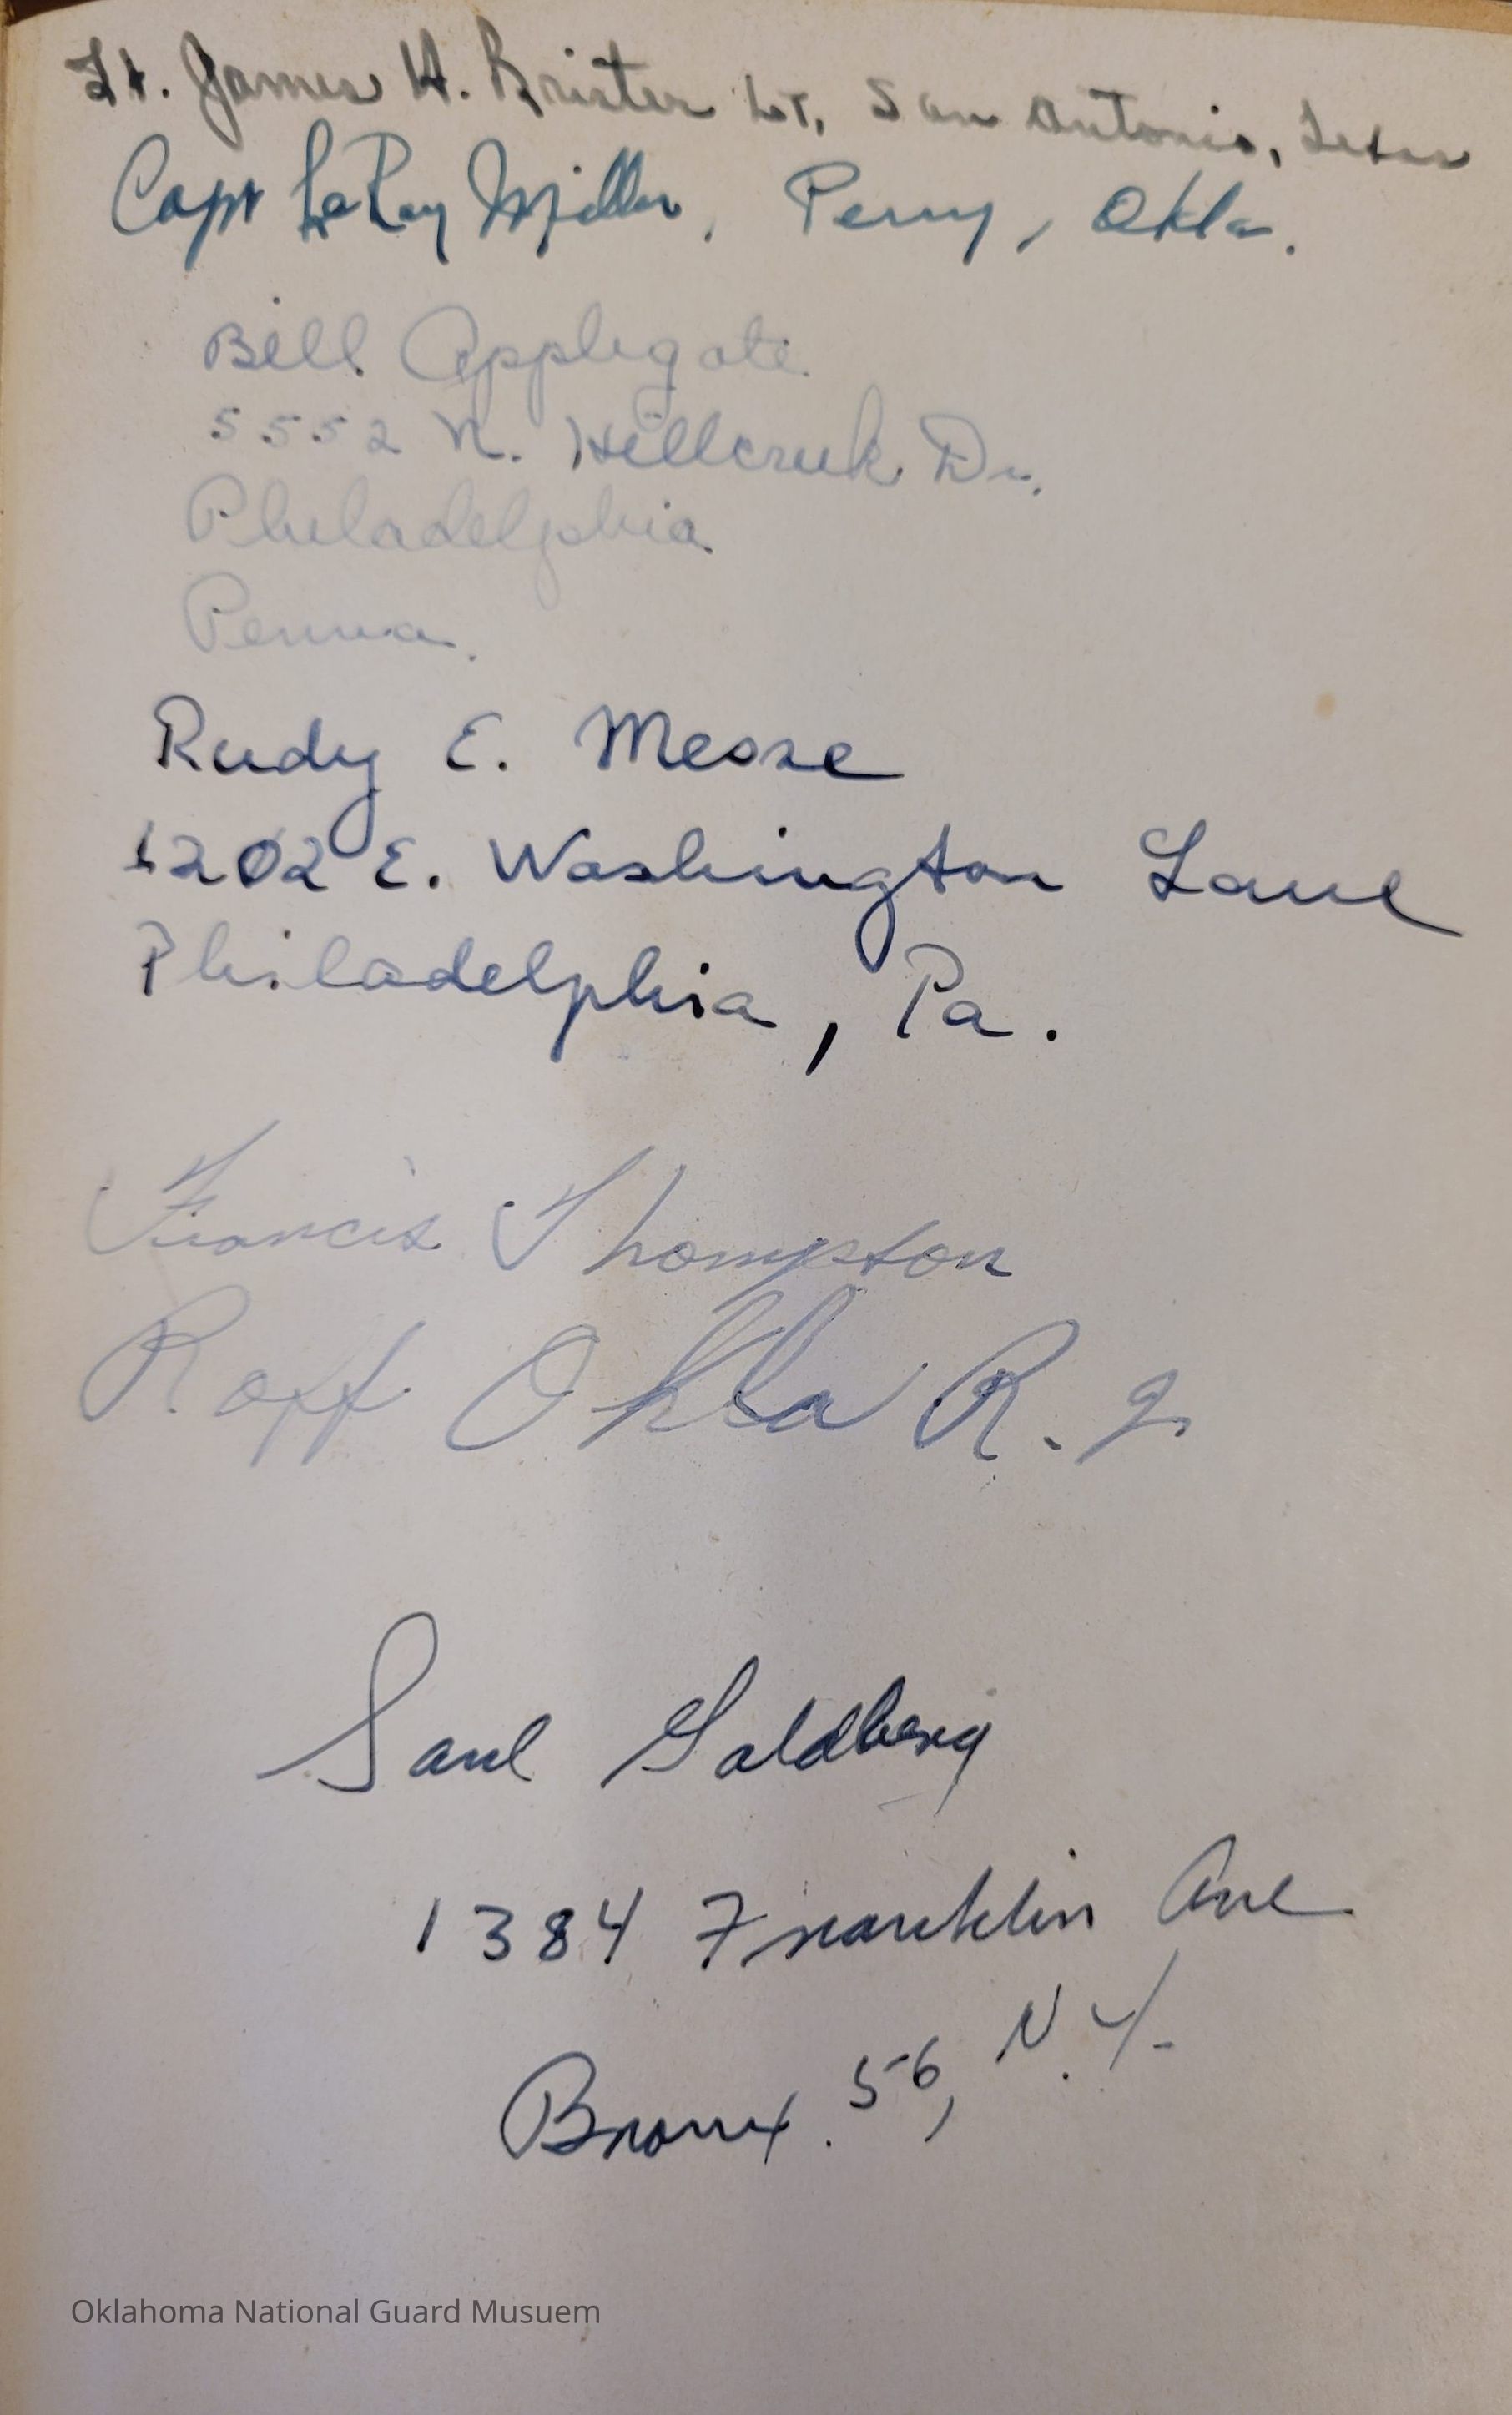 Lt. James H. Krister Lt, San Antonio, Texas
Capt LeRoy Miller, Perry, Okla.
Bill Applegate
5552 N. Hillcreek Dr.
Philadelphia
Penna.
Rudy E. Messe
1202 E. Washington Lane
Philadelphia, Pa.
Francis Thompson
Roff Okla R. 2.
Saul Goldberg
1384 Franklin Ave
Bronx 56, N.Y.
Oklahoma National Guard Musuem